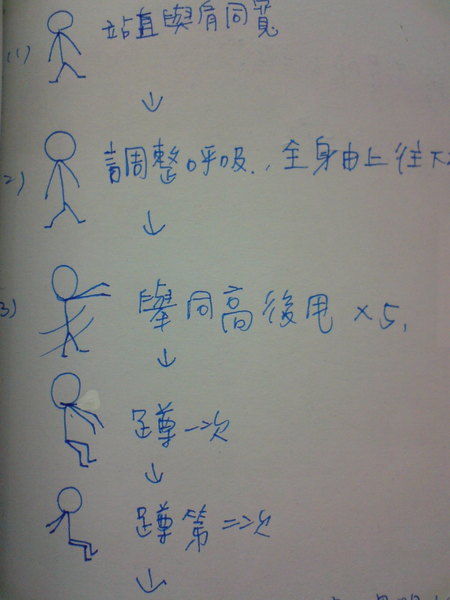 (1) 站直與肩同寬
2) 調整呼吸.,全身由上往下
3) 舉同高後甩×5,
蹲一次
蹲第二次